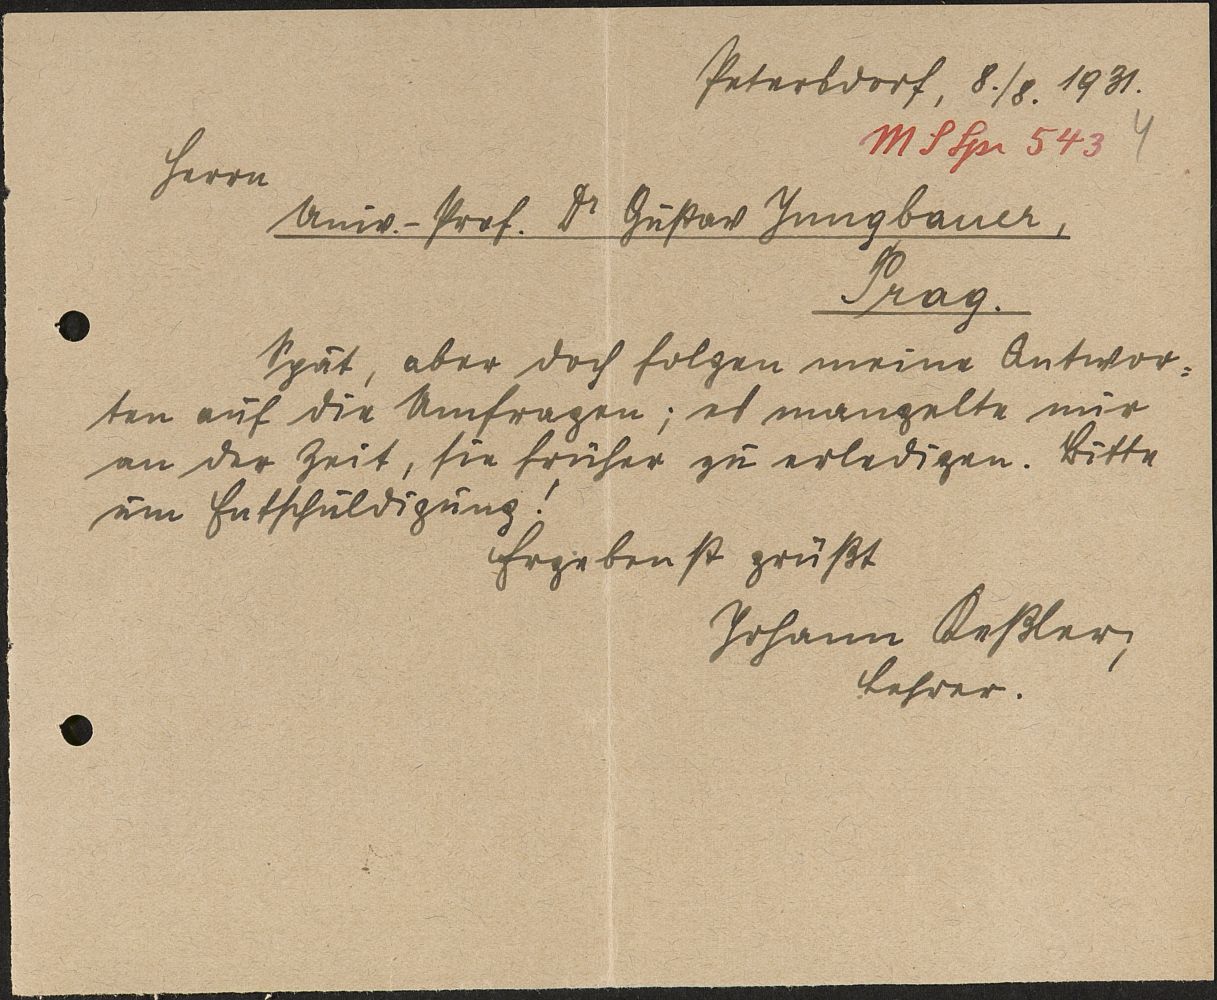 Petersdorf, 8./8. 1931.
M S Spr 543 4
Herrn
Univ.-Prof. Dr Gustav Jungbauer,
Prag.
Spät, aber doch folgen meine Antwor=
ten auf die Umfragen; es mangelte mir
an der Zeit, sie früher zu erledigen. Bitte
um Entschuldigung!
Ergebenst grüßt
Johann Keßler,
Lehrer.